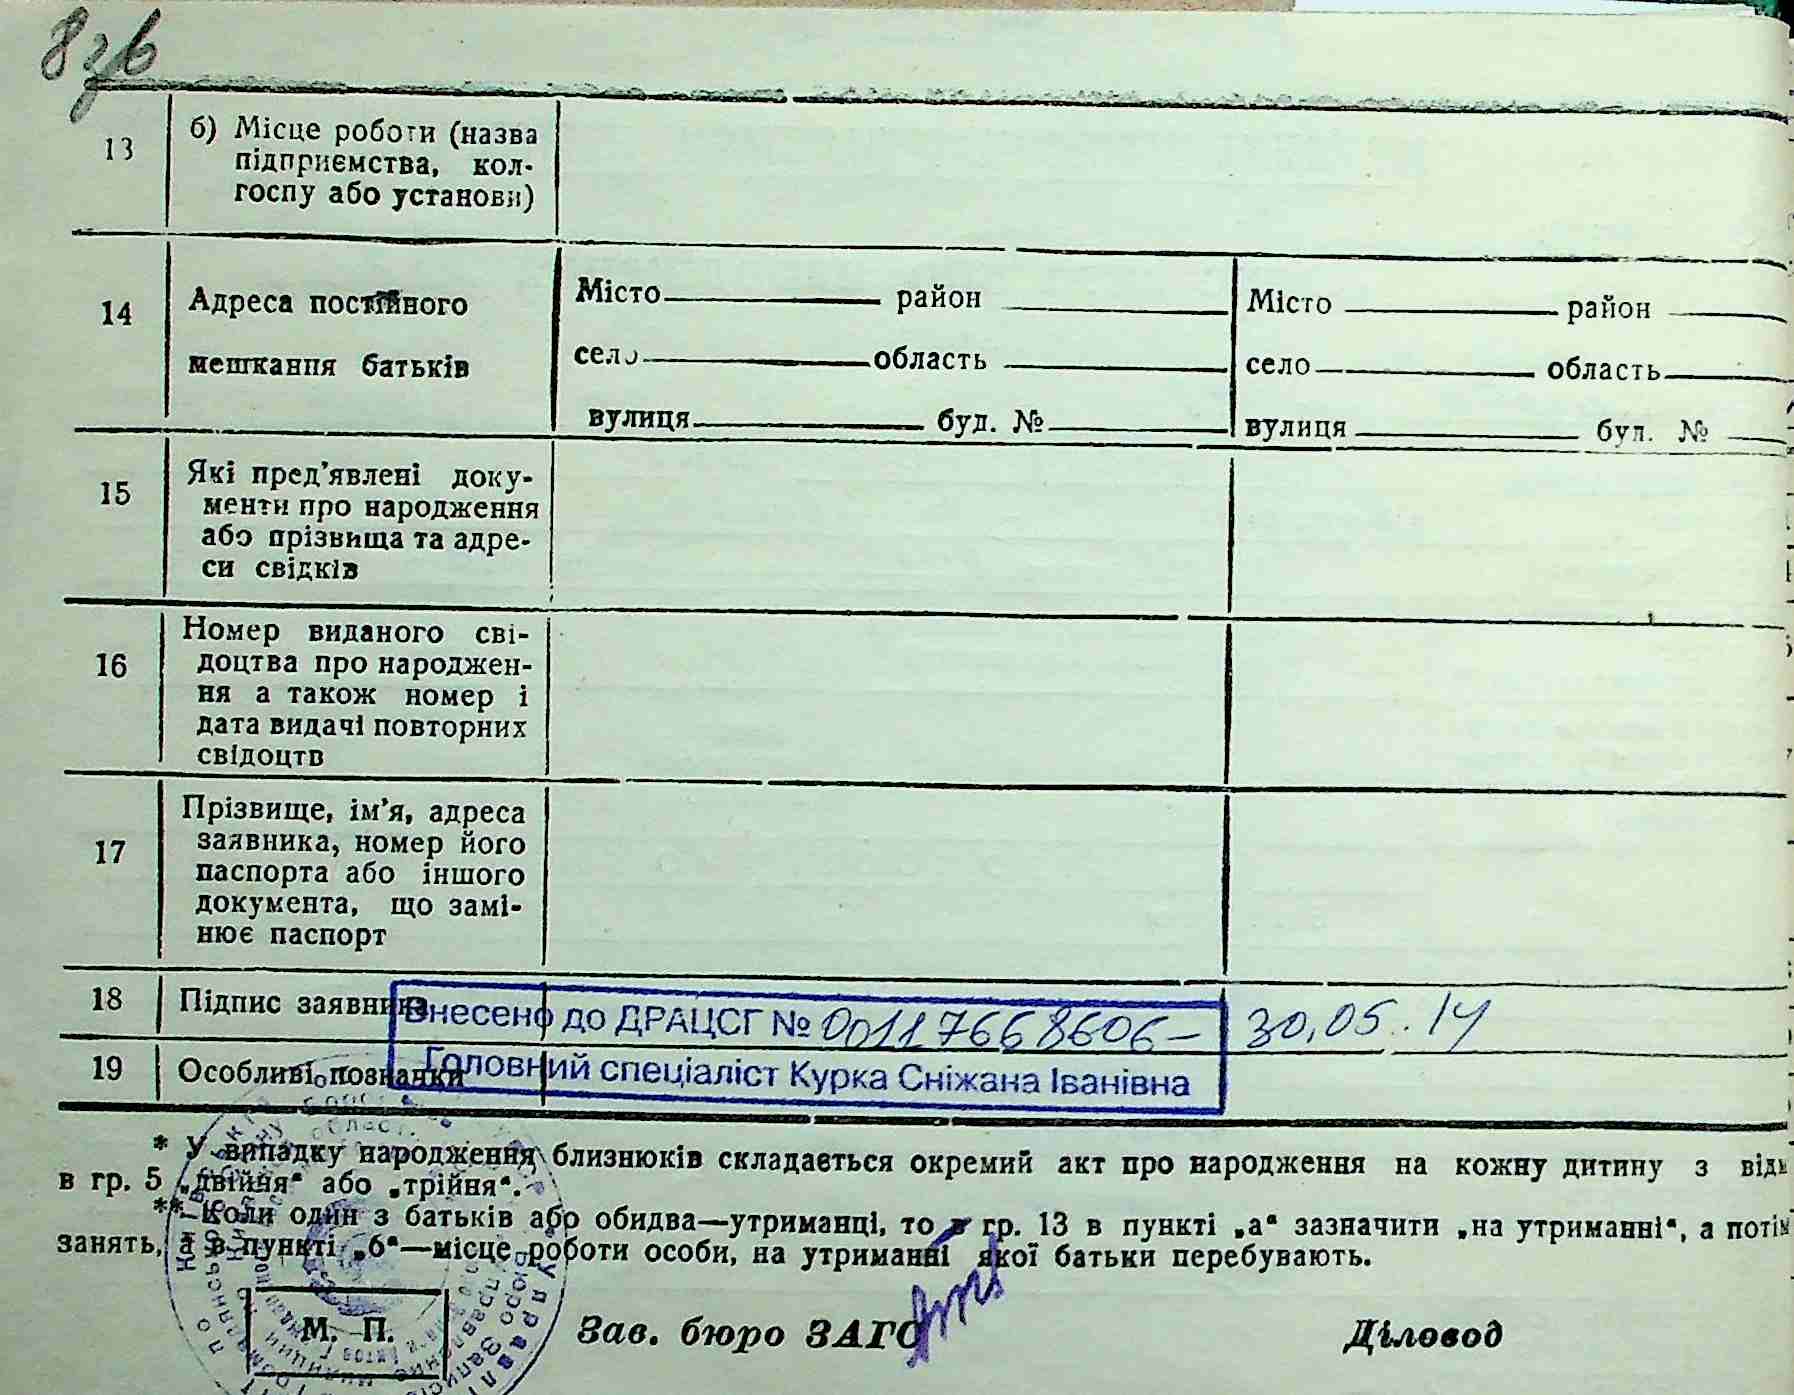 8зв
13 б) Місце роботи (назва
підприємства, кол-
госпу або установи)
14 Адреса постійного
мешкання батьків
Місто район
село область
вулиця буд. №
Місто район
село область
вулиця буд. №
15 Які пред'явлені доку-
менти про народження
або прізвища та адре-
си свідків
16 Номер виданого сві-
доцтва про народжен-
ня а також номер і
дата видачі повторних
свідоцтв
17 Прізвище, ім'я, адреса
заявника, номер його
паспорта або іншого
документа, що замі-
нює паспорт
18 Підпис заявника
Внесено до ДРАЦСГ № 00117668606- 30.05.14
19 Особливі позначки
Головний спеціаліст Курка Сніжана Іванівна
* У випадку народження близнюків складається окремий акт про народження на кожну дитину з
в гр. 5 „двійня“ або „трійня“.
**Коли один з батьків або обидва—утриманці, то в гр. 13 в пункті „а“ зазначити „на утриманні“, а потім
занять, а в пункті „б“—місце роботи особи, на утриманні якої батьки перебувають.
М. П. Зав. бюро ЗАГС Діловод